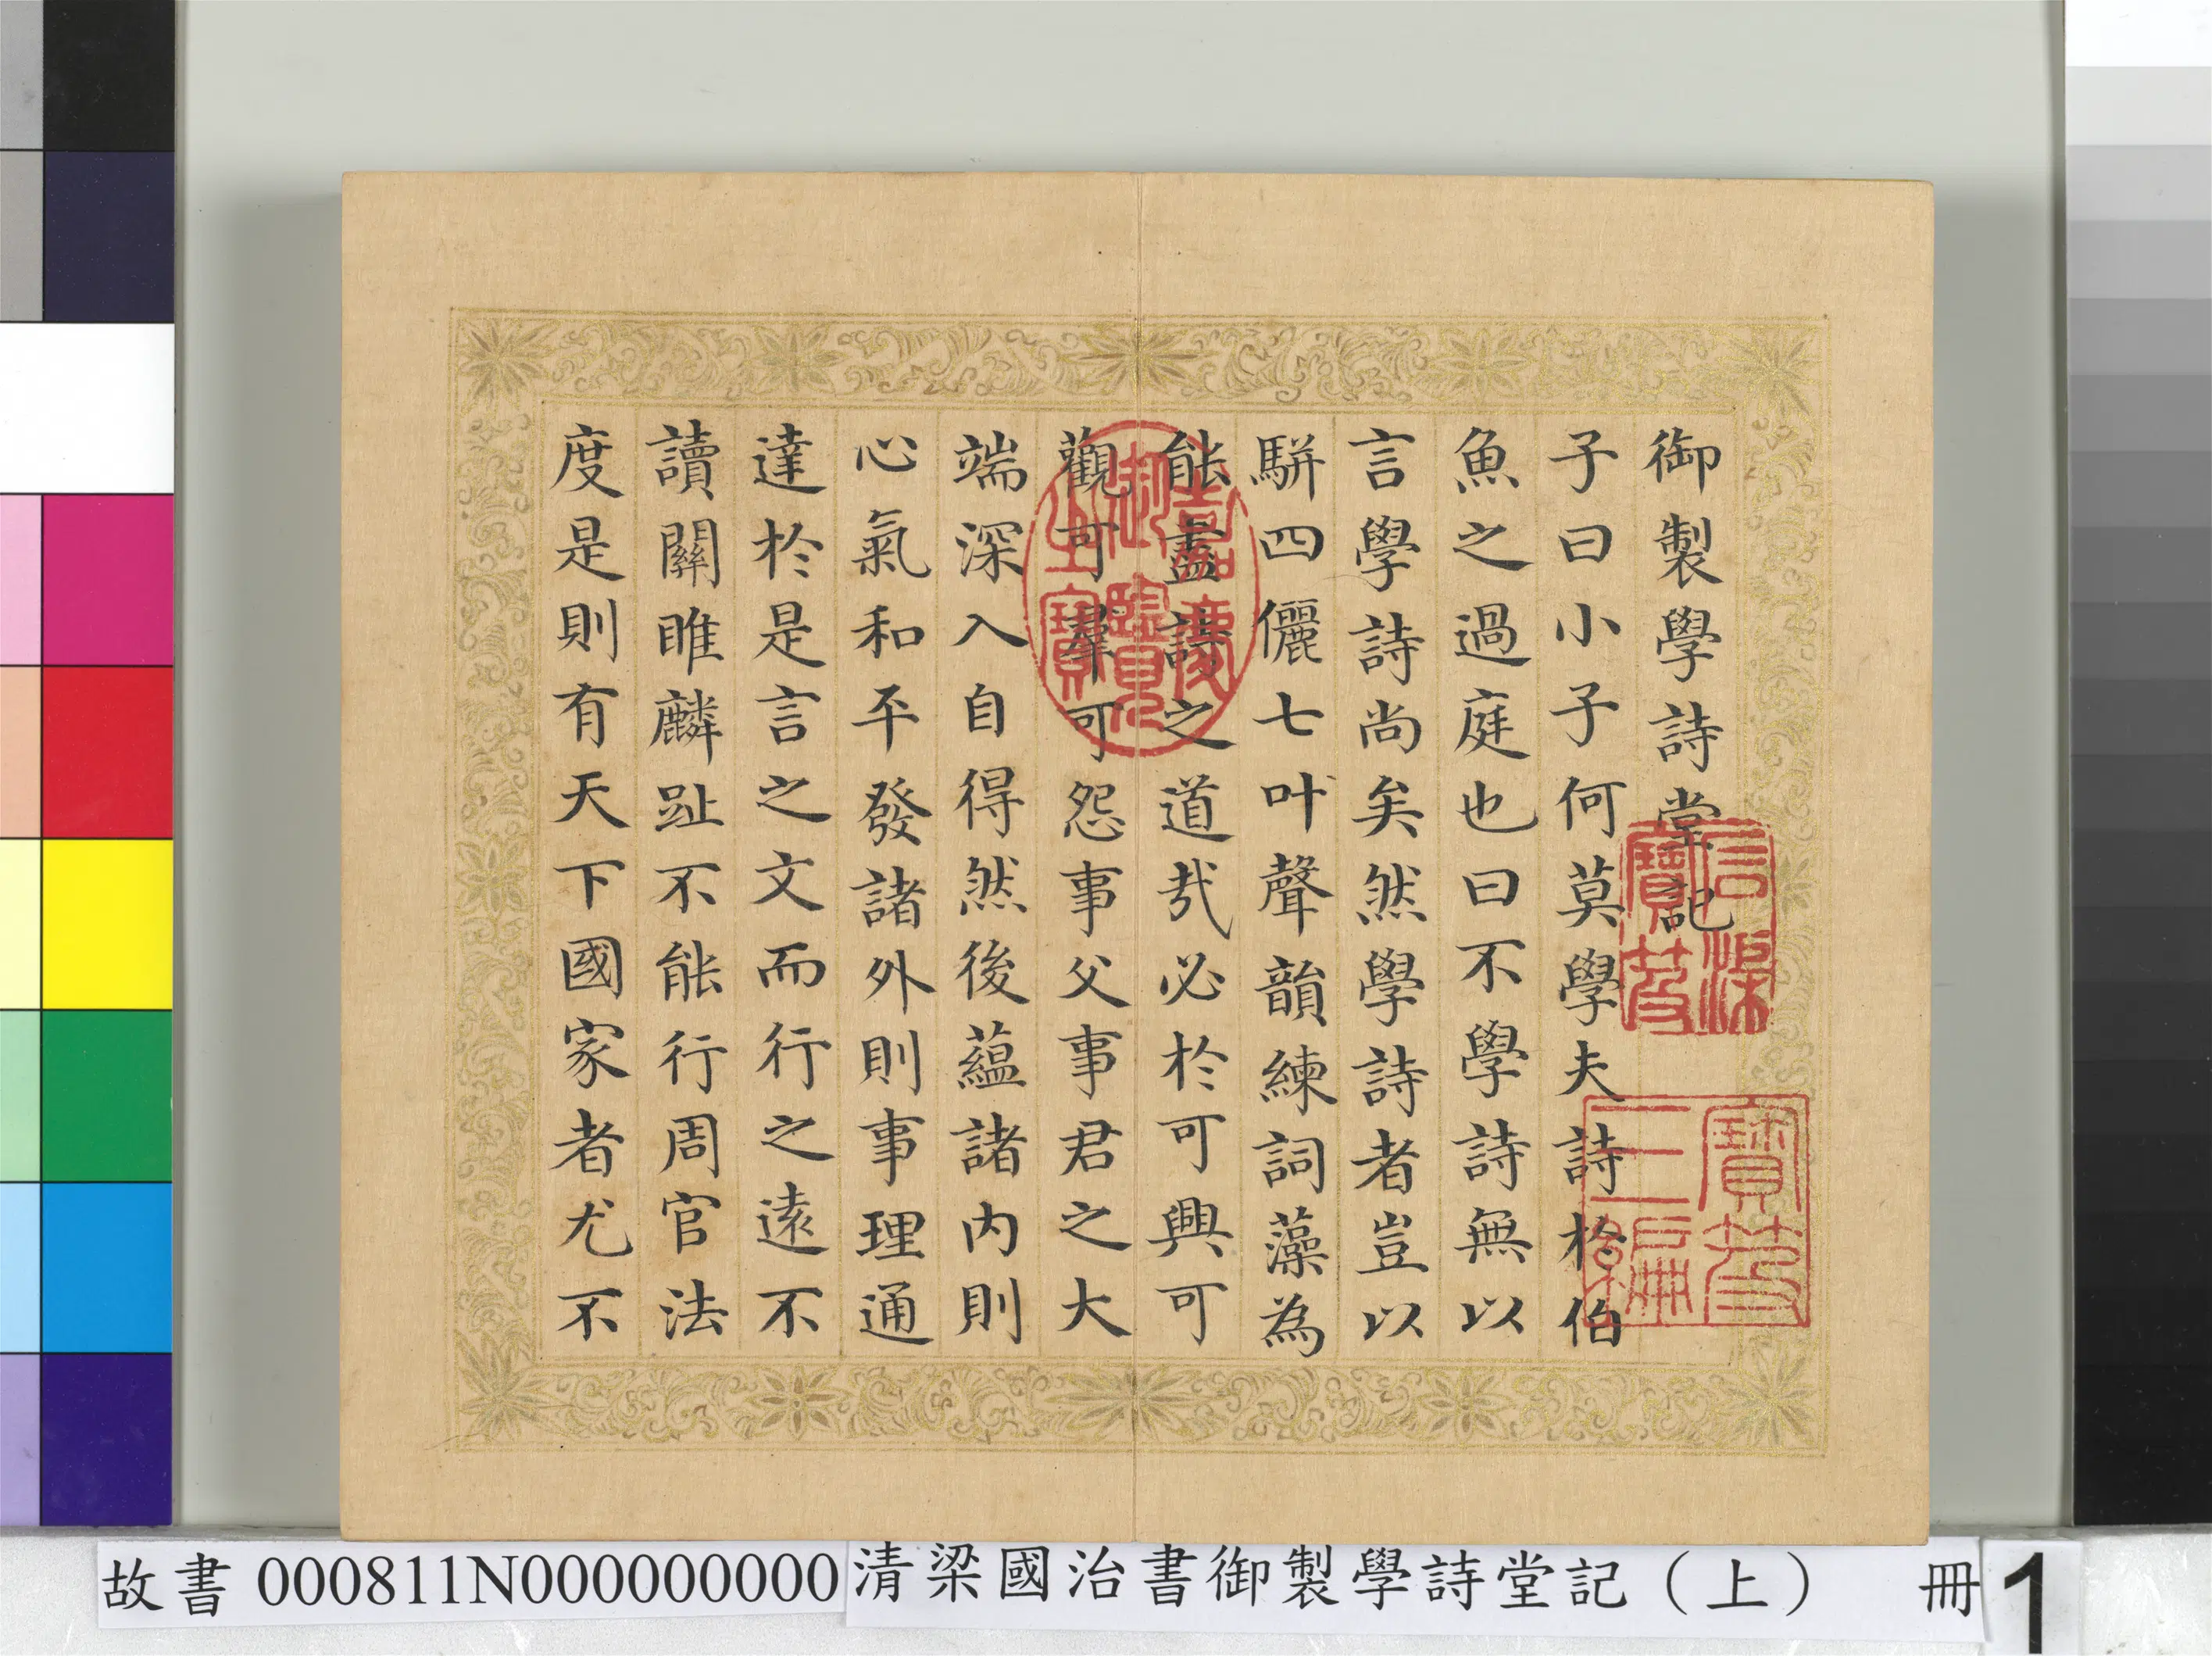 御製學詩堂記
子曰小子何莫學夫詩於伯
魚之過庭也曰不學詩無以
言學詩尚矣然學詩者豈以
駢四儷七叶聲韻練詞藻為
能盡詩之道哉必於可興可
觀可羣可怨事父事君之大
端深入自得然後蘊諸內則
心氣和平發諸外則事理通
達於是言之文而行之遠不
讀關雎麟趾不能行周官法
度是則有天下國家者尤不
嘉慶御覽之寶
石渠寶笈
寶笈三編
故書 000811N000000000 清梁國治書御製學詩堂記（上） 冊 1